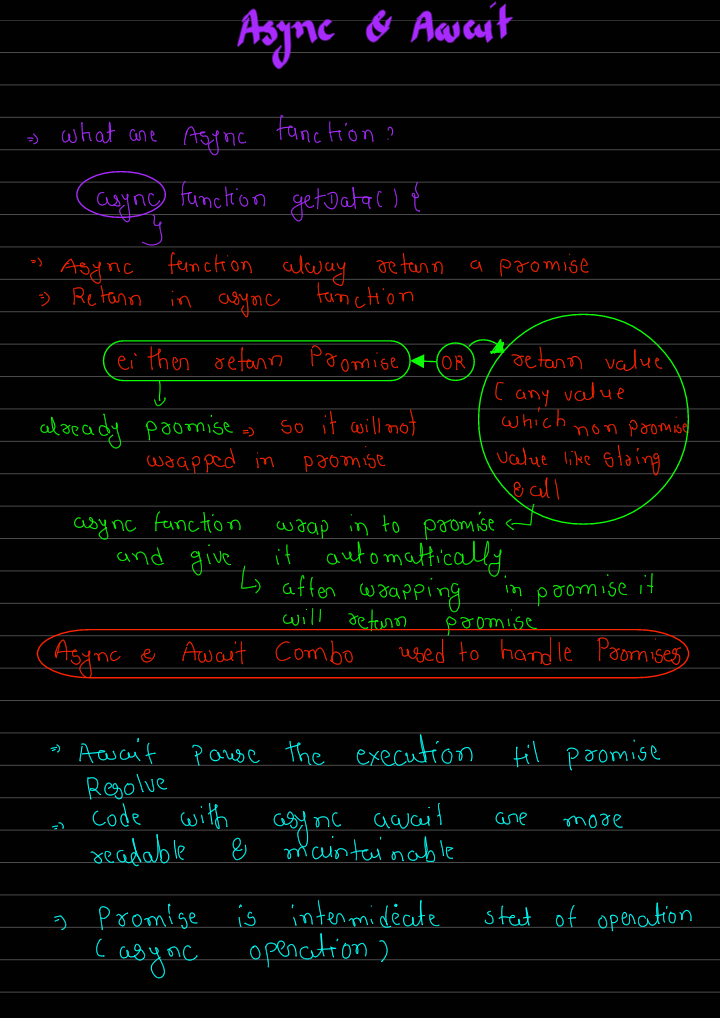 Async & Await
=> what are Async function?
async function getData() {
}
=> Async function alway return a promise
=> Return in async function
either return Promise
OR
return value
( any value
which non promise
value like string
& all
already promise => so it will not
wrapped in promise
async function wrap in to promise
and give it automattically
after wrapping in promise it
will return promise
Async & Await Combo used to handle Promises
=> Await pause the execution til promise
Resolve
=> Code with async await are more
readable & maintainable
=> Promise is intermidecate stat of operation
( async operation )